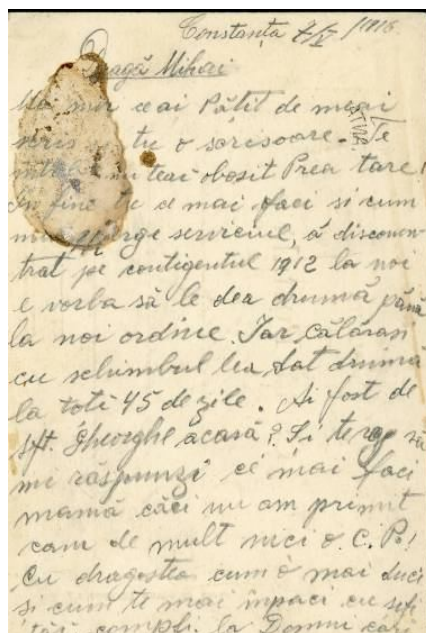 Constanța 7/V/1916
Dragă Mihai
Mă mir ce ai Pățit de meai
scris și tu o scrisoare. Te
nu teai obosit Prea tare!
În fine tu ce mai faci si cum
merge serviciul, a disconcen
trat pe contigentul 1912 la noi
e vorba să le dea drumă până
la noi ordine. Iar călărași
cu schimbul lea dat drumă
la toti 45 de zile. Ai fost de
Sft. Gheorghe acasă? Si te rog să
mi răspunzi ce mai face
mamă căci nu am primit
cam de mult nici o C. P.!
Cu dragostea cum o mai duci
si cum te mai impaci cu sefi
la Domnu